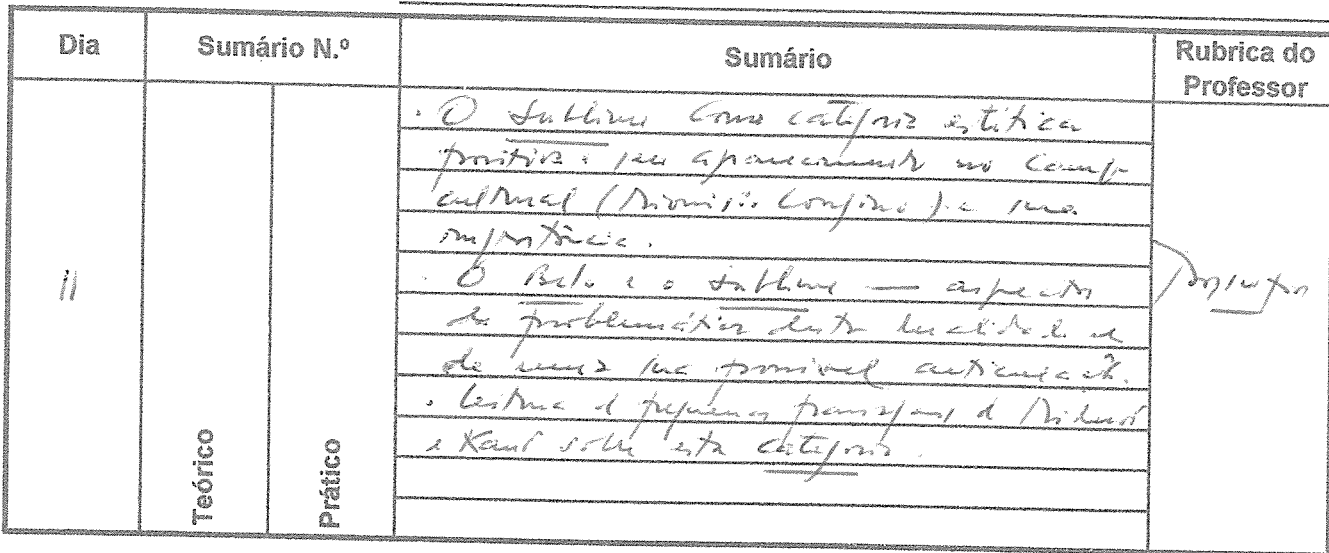 Dia Sumário N.º Sumário Rubrica do
Professor
. O Sublime como categoria estética
positiva: seu aparecimento no campo
cultural (Dionísio Longino) e sua
importância.
11
. O Belo e o Sublime — aspectos
da problemática desta dualidade e
de uma sua possível articulação.
. Leitura de pequenas passagens de Diderot
e Kant sobre esta categoria.
Teórico
Prático